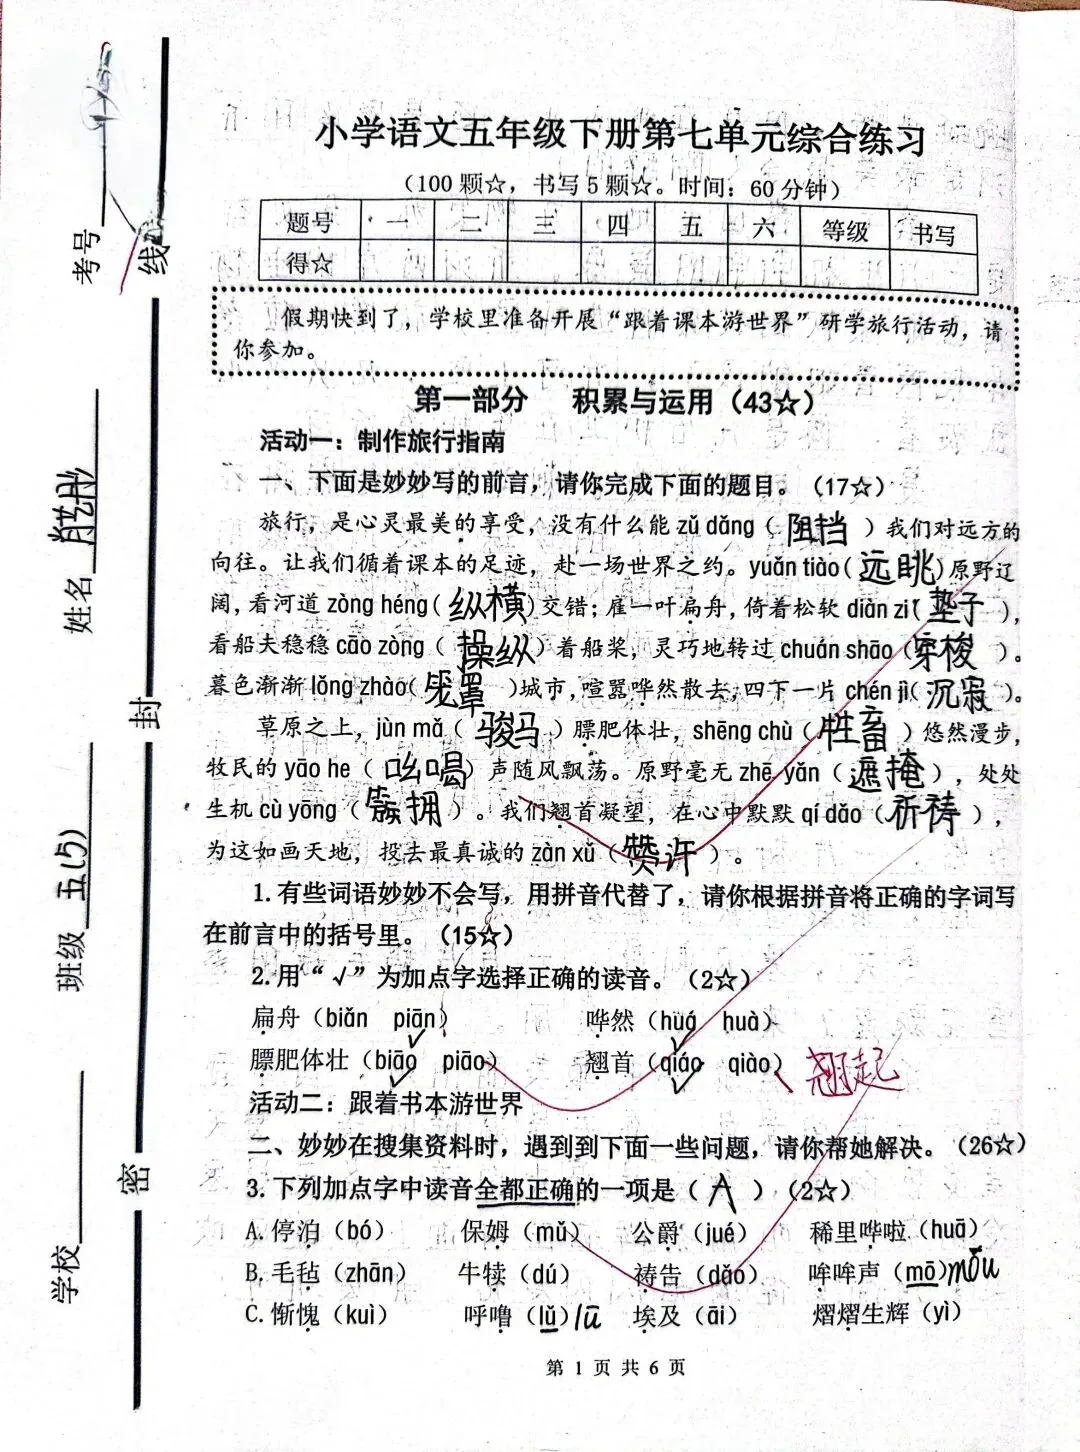 小学语文五年级下册第七单元综合练习
（100颗☆，书写5颗☆。时间：60分钟）
题号 一 二 三 四 五 六 等级 书写
得☆
假期快到了，学校里准备开展“跟着课本游世界”研学旅行活动，请
你参加。
第一部分 积累与运用（43☆）
活动一：制作旅行指南
一、下面是妙妙写的前言，请你完成下面的题目。（17☆）
旅行，是心灵最美的享受，没有什么能 zǔ dǎng（ 阻挡 ）我们对远方的
向往。让我们循着课本的足迹，赴一场世界之约。yuǎn tiào( 远眺 )原野辽
阔，看河道 zòng héng( 纵横 )交错；雇一叶扁舟，倚着松软 diàn zi( 垫子 )，
看船夫稳稳 cāo zòng（ 操纵 ）着船桨，灵巧地转过 chuán shāo（ 穿梭 ）。
暮色渐渐 lǒng zhào( 笼罩 )城市，喧嚣哗然散去，四下一片 chén jì( 沉寂 )。
草原之上，jùn mǎ（ 骏马 ）膘肥体壮，shēng chù（ 牲畜 ）悠然漫步，
牧民的 yāo he（ 吆喝 ）声随风飘荡。原野毫无 zhē yǎn（ 遮掩 ），处处
生机 cù yōng（ 簇拥 ）。我们翘首凝望，在心中默默 qí dǎo（ 祈祷 ），
为这如画天地，投去最真诚的 zàn xǔ（ 赞许 ）。
1. 有些词语妙妙不会写，用拼音代替了，请你根据拼音将正确的字词写
在前言中的括号里。（15☆）
2. 用“√”为加点字选择正确的读音。（2☆）
扁舟（biǎn piān） 哗然（huá huà）
膘肥体壮（biāo piāo） 翘首（qiáo qiào） 翘起
活动二：跟着书本游世界
二、妙妙在搜集资料时，遇到到下面一些问题，请你帮她解决。（26☆）
3. 下列加点字中读音全都正确的一项是（ A ）（2☆）
A. 停泊（bó） 保姆（mǔ） 公爵（jué） 稀里哗啦（huā）
B. 毛毡（zhān） 牛犊（dú） 祷告（dǎo） 哞哞声（mō）mōu
C. 惭愧（kuì） 呼噜（lǔ）lū 埃及（āi） 熠熠生辉（yì）
第 1 页 共 6 页
考号
线
姓名
封
班级 五(5)
密
学校